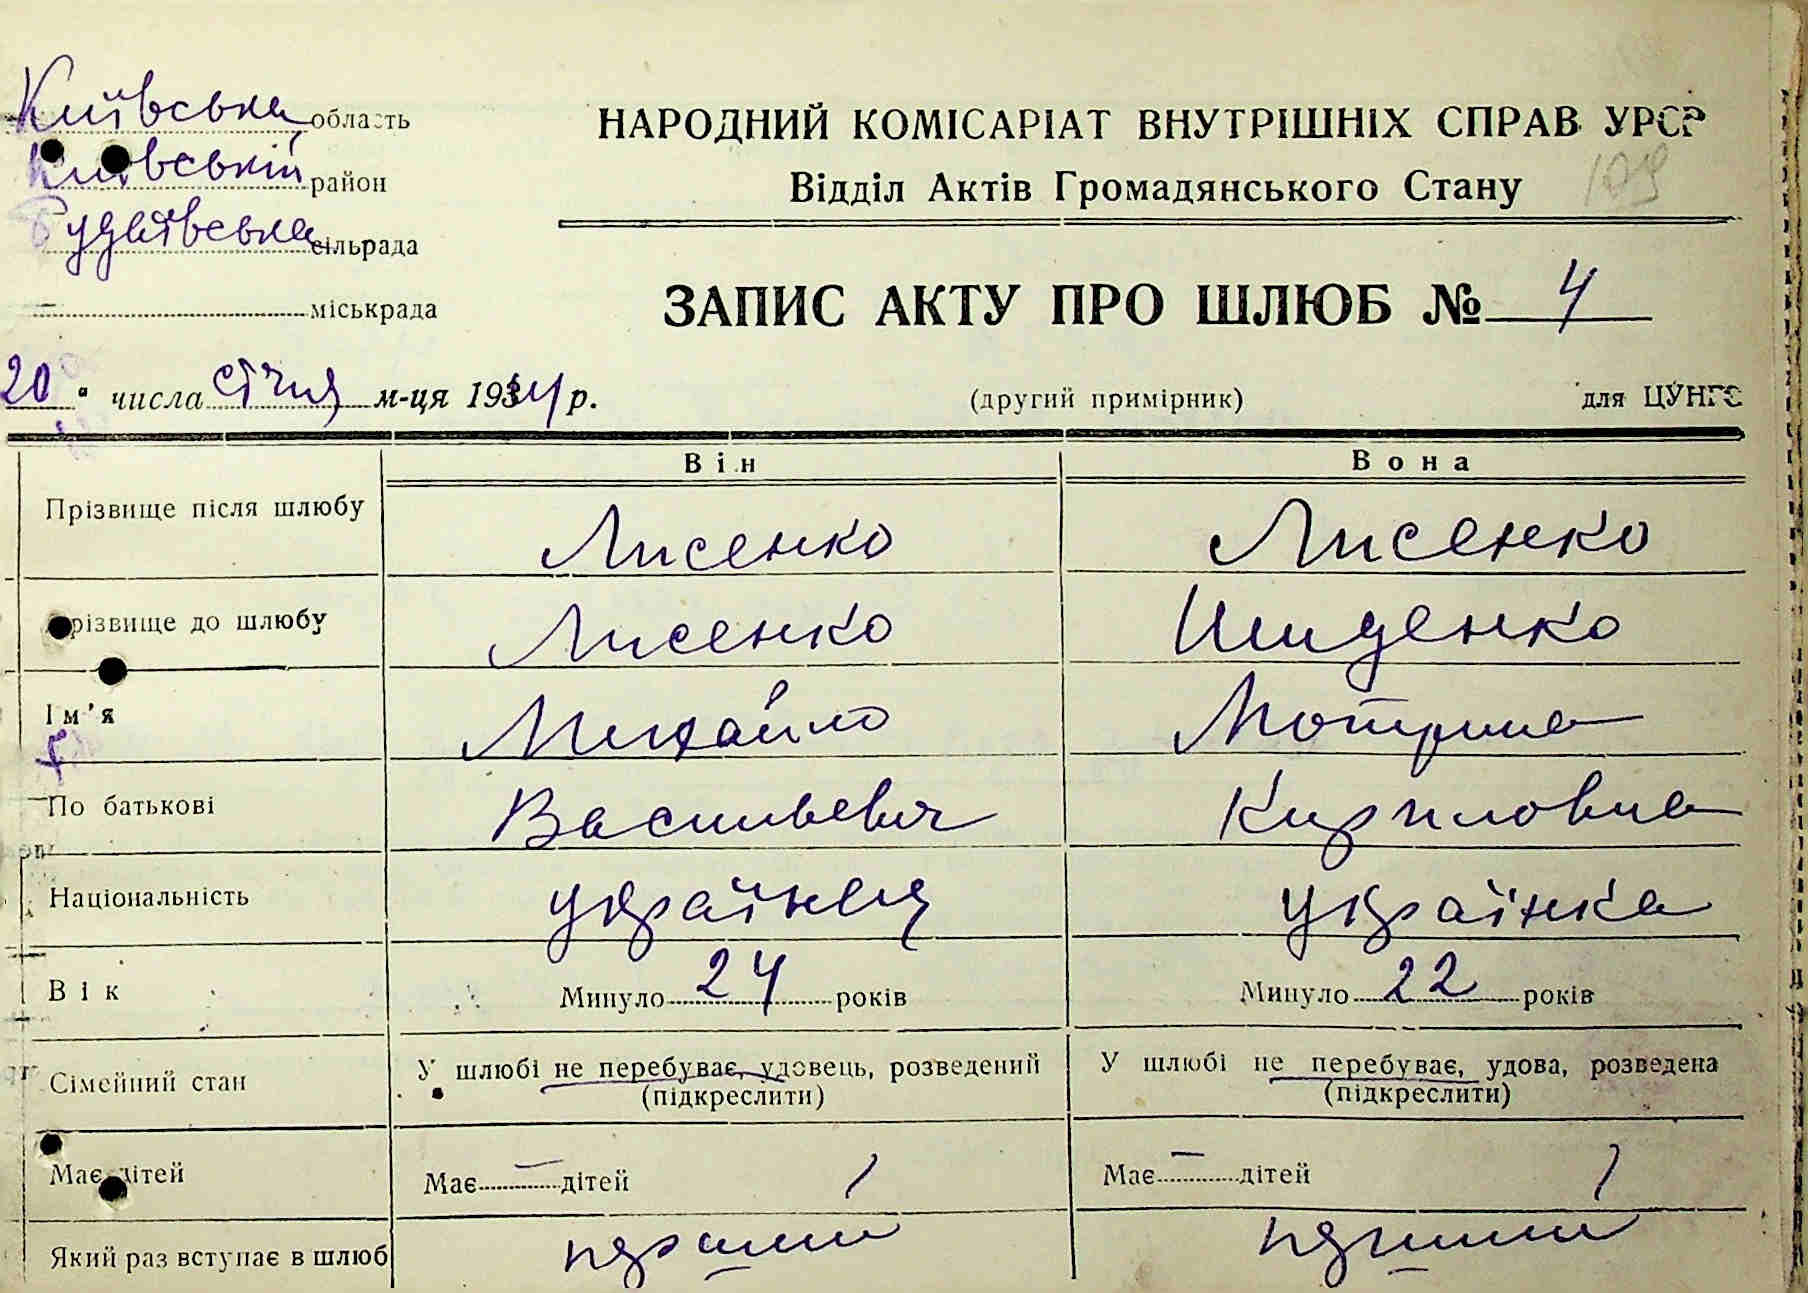 Київська область
НАРОДНИЙ КОМІСАРІАТ ВНУТРІШНІХ СПРАВ УРСР
Київській район
109
Відділ Актів Громадянського Стану
сільрада
міськрада
ЗАПИС АКТУ ПРО ШЛЮБ № 4
20 числа січня м-ця 1934 р.
(другий примірник)
для ЦУНГО
Він
Вона
Прізвище після шлюбу
Лисенко
Лисенко
Прізвище до шлюбу
Лисенко
Ім'я
Михайло
Мотрина
По батькові
Васильевич
Кириловна
Національність
українец
українка
Вік
Минуло 24 років
Минуло 22 років
Сімейний стан
У шлюбі не перебуває, удовець, розведений
(підкреслити)
У шлюбі не перебуває, удова, розведена
(підкреслити)
Має дітей
Має — дітей
Має — дітей
Який раз вступає в шлюб